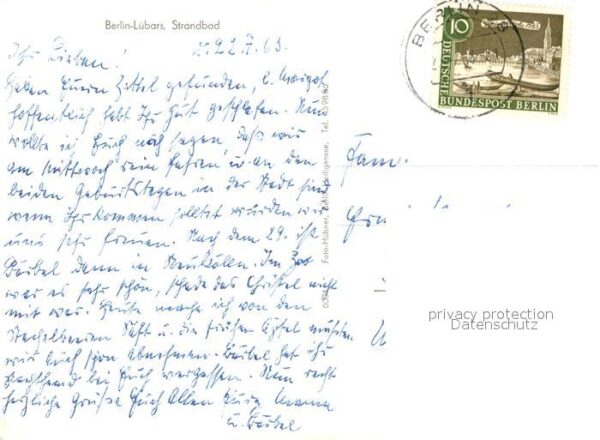 Berlin-Lübars, Strandbad
22.7.63.
Ihr Lieben!
Haben Euren Zettel gefunden, l. Margot
hoffentlich habt Ihr gut geschlafen. Nun
wollte ich Euch noch sagen, daß wir
am Mittwoch rein fahren u. an den
beiden Geburtstagen in der Stadt sind
wenn Ihr kommen solltet würden wir
uns sehr freuen. Nach dem 29. ist
Bärbel dann in Neukölln. Im Zoo
war es sehr schön, schade das Christel nicht
mit war. Heute mache ich von den
Stachelbeeren Saft u. die frühen Äpfel mußten
wir auch schon abnehmen. Bärbel hat ihr
bei Euch vergessen. Nun recht
herzliche Grüße Euch Allen Eure Mama
u. Bärbel
Foto-Hübner, Berlin-Heiligensee, Tel.
BERLIN
10
DEUTSCHE
BUNDESPOST BERLIN
Fam.
privacy protection
Datenschutz